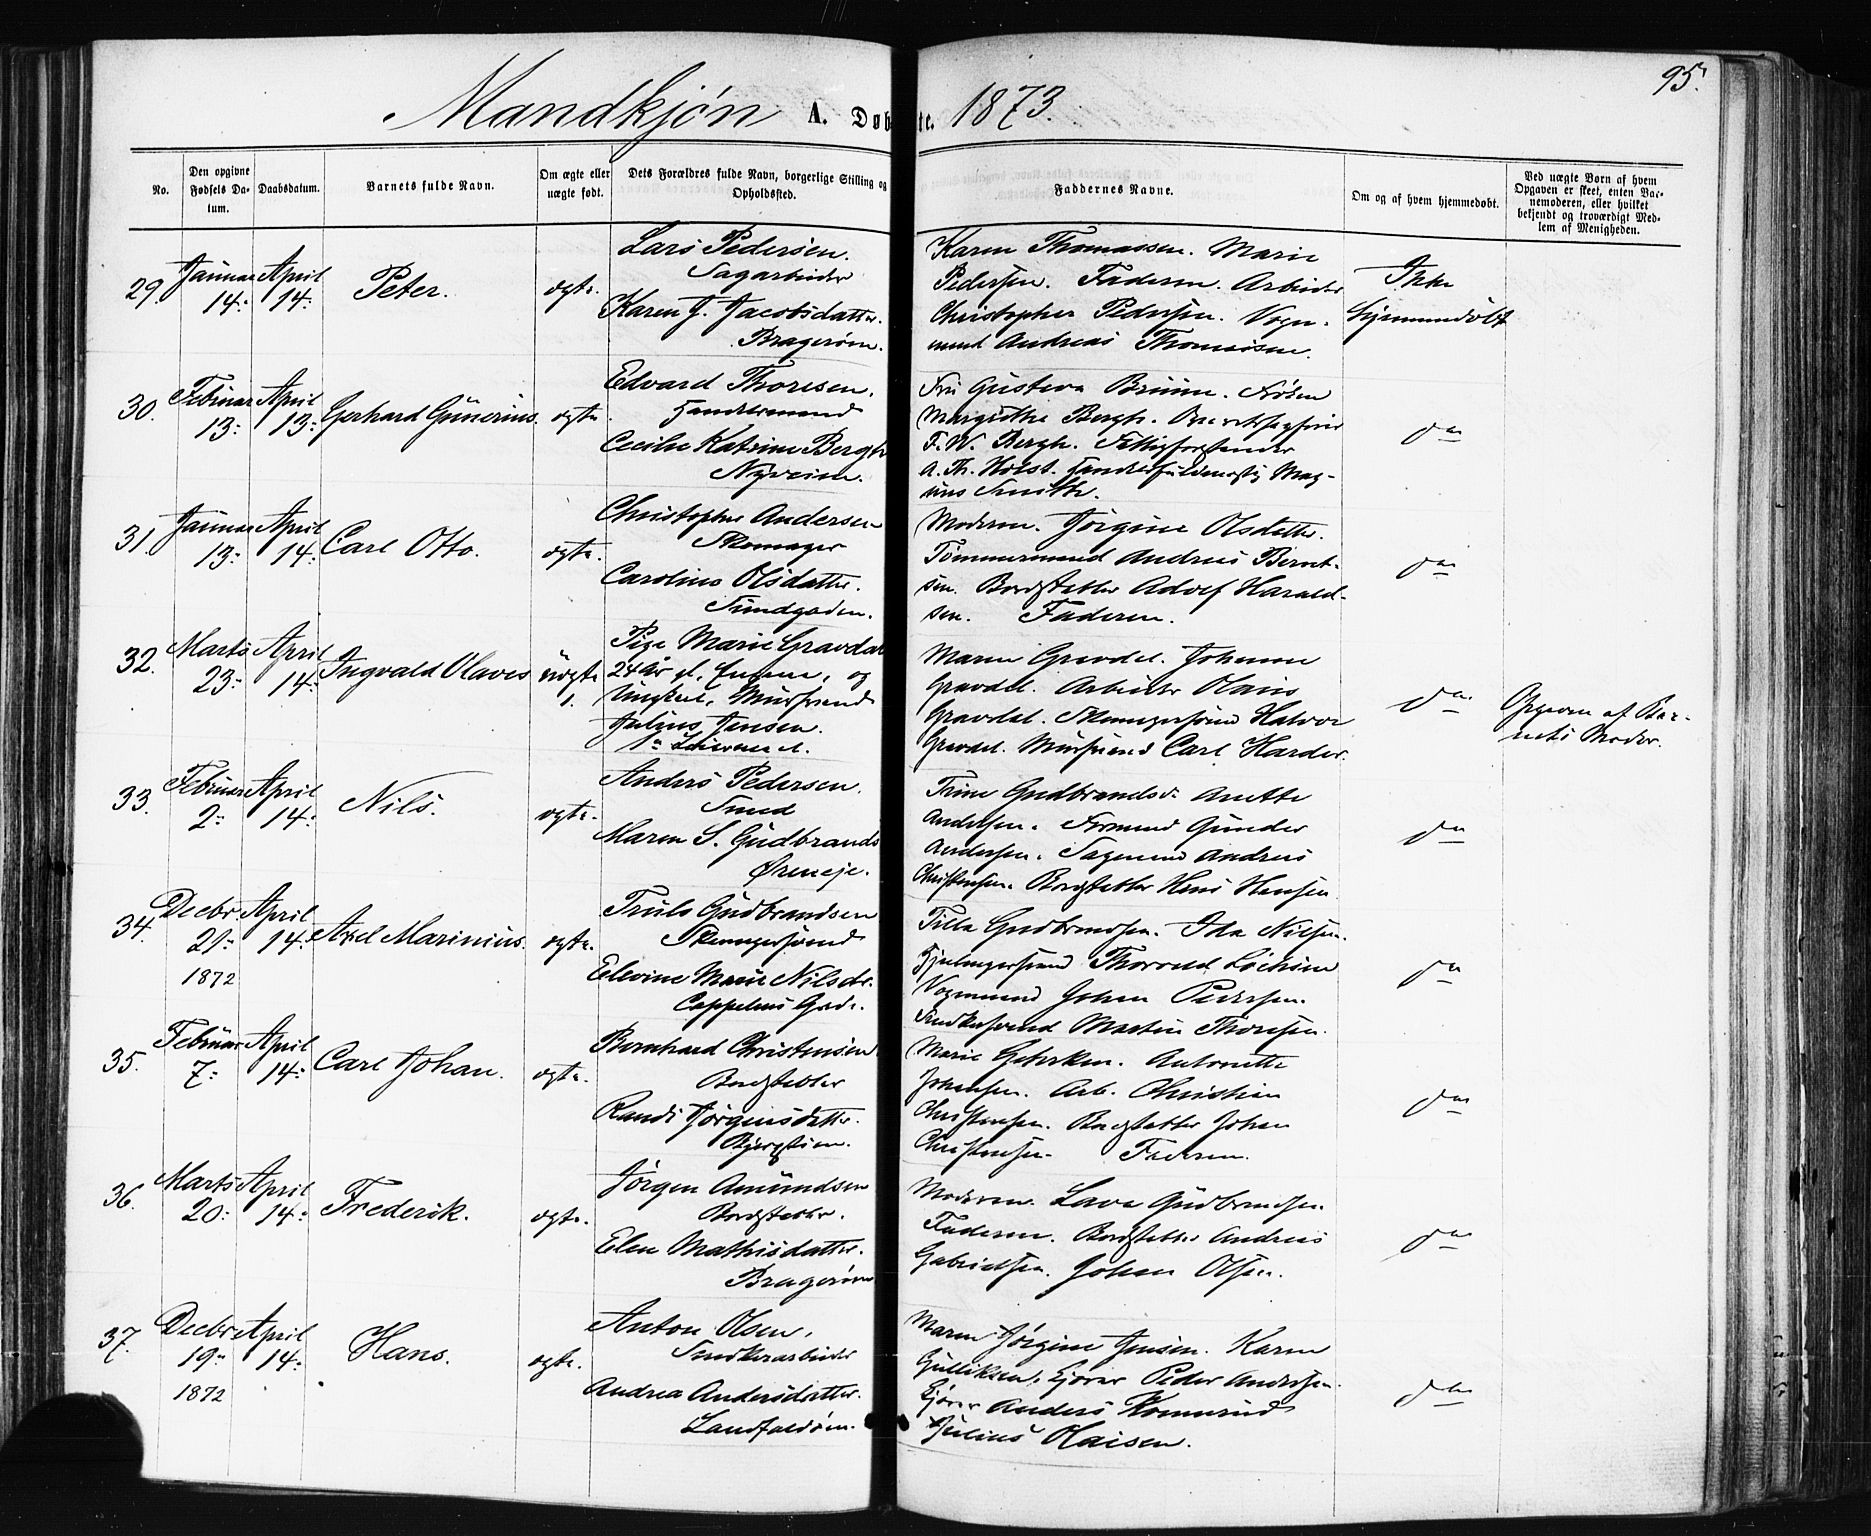 95.
Mandkjön A. Døbte. 1873.
No.
Den opgivne Fødsels Datum.
Daabsdatum.
Barnets fulde Navn.
Om ægte eller uægte født.
Dets Forældres fulde Navn, borgerlige Stilling og Opholdssted.
Faddernes Navne.
Om og af hvem hjemmedøbt.
Ved uægte Børn af hvem Opgaven er skeet, enten Barnemoderen, eller hvilket bekjendt og troværdigt Medlem af Menigheden.
29. Januar 14: April 14: Peter. ægte.
Lars Pedersen.
Sagarbeider
Karen J. Jacobsdatter.
Bragerøen.
Karen Thomassen. Marie
Pedersen. Faderen. Arbeider
Christopher Pedersen. Vogn-
mand Andreas Thomassen.
Ikke
Hjemmedøbt
30. Februar 13: April 13: Gerhard Günerius. ægte
Edvard Thoresen.
Handelsmand
Cecilie Katrine Bergh
Nyveien.
Fru Gustava Bruun. Frøken
Margrethe Bergh.
F. W. Bergh. Fattigforstander
A. Th. Horst. Handelsfuldmægtig Mag-
nus Smith.
do
31. Januar 13: April 14: Carl Otto. ægte.
Christopher Andersen
Skomager
Caroline Olsdatter.
Sundgaden.
Moderen. Jörgine Olsdatter.
Tømmermand Andreas Bernt-
sen. Bordstabler Adolf Harald-
sen. Faderen.
do
32. Marts 23: April 14: Ingvald Olaves uægte 1.
Pige Marie Gravdal
24 Aar gl. og
Ungkarl, Mursvend
Julius Jensen.
Maren Gravdal. Johanne
Gravdal. Arbeider Hans
Gravdal. Skomagersvend Halvor
Gravdal. Mursvend Carl Harder.
do
Opgaven af Bar-
nets Moder.
33. Februar 2: April 14: Nils. ægte.
Anders Pedersen.
Smed
Maren S. Gudbrands
Øreneje.
Trine Gudbrandsd. Anette
Andersen. Formand Gunder
Andersen. Sagmand Andreas
Christensen. Bordstabler Hans Hansen
do
34. Decbr. 21: 1872 April 14: Axel Marinius. ægte.
Truls Gudbrandsen
Skomagersvend
Elevine Marie Nilsdr.
Cappelens Gade.
Tilla Gudbrandsen. Ida Nilsen.
Hjulmagersvend Thorvald
Vognmand Johan Pedersen.
Snedkersvend Martin Thoresen.
do
35. Februar 7: April 14: Carl Johan. ægte.
Bernhard Christensen
Bordstabler
Randi Jørgensdatter.
Bjergstien.
Marie Antonette
Johansen. Arb. Christian
Christensen. Bordstabler Johan
Christensen. Faderen.
do
36. Marts 20: April 14: Frederik. ægte.
Jörgen Amundsen
Bordstabler.
Elen Mathisdatter.
Bragerøen
Moderen. Lava Gudbrandsen.
Faderen. Bordstabler Andreas
Gabrielsen. Johan Olsen.
do
37. Decbr. 19: 1872 April 14: Hans. ægte.
Anton Olsen.
Snedkerarbeider
Andrea Andersdatter.
Landfaldøen.
Maren Jörgine Jensen. Karen
Gulliksen. Kjører Peder Andersen.
Kjører Anders Komnerud
Julius Olaisen.
do